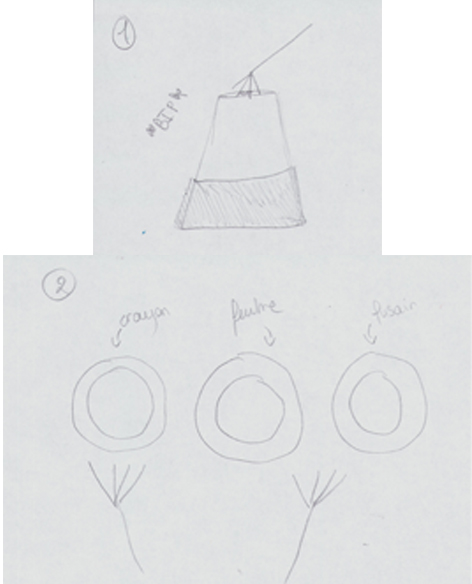 1
"BIP"
2
crayon feutre fusain